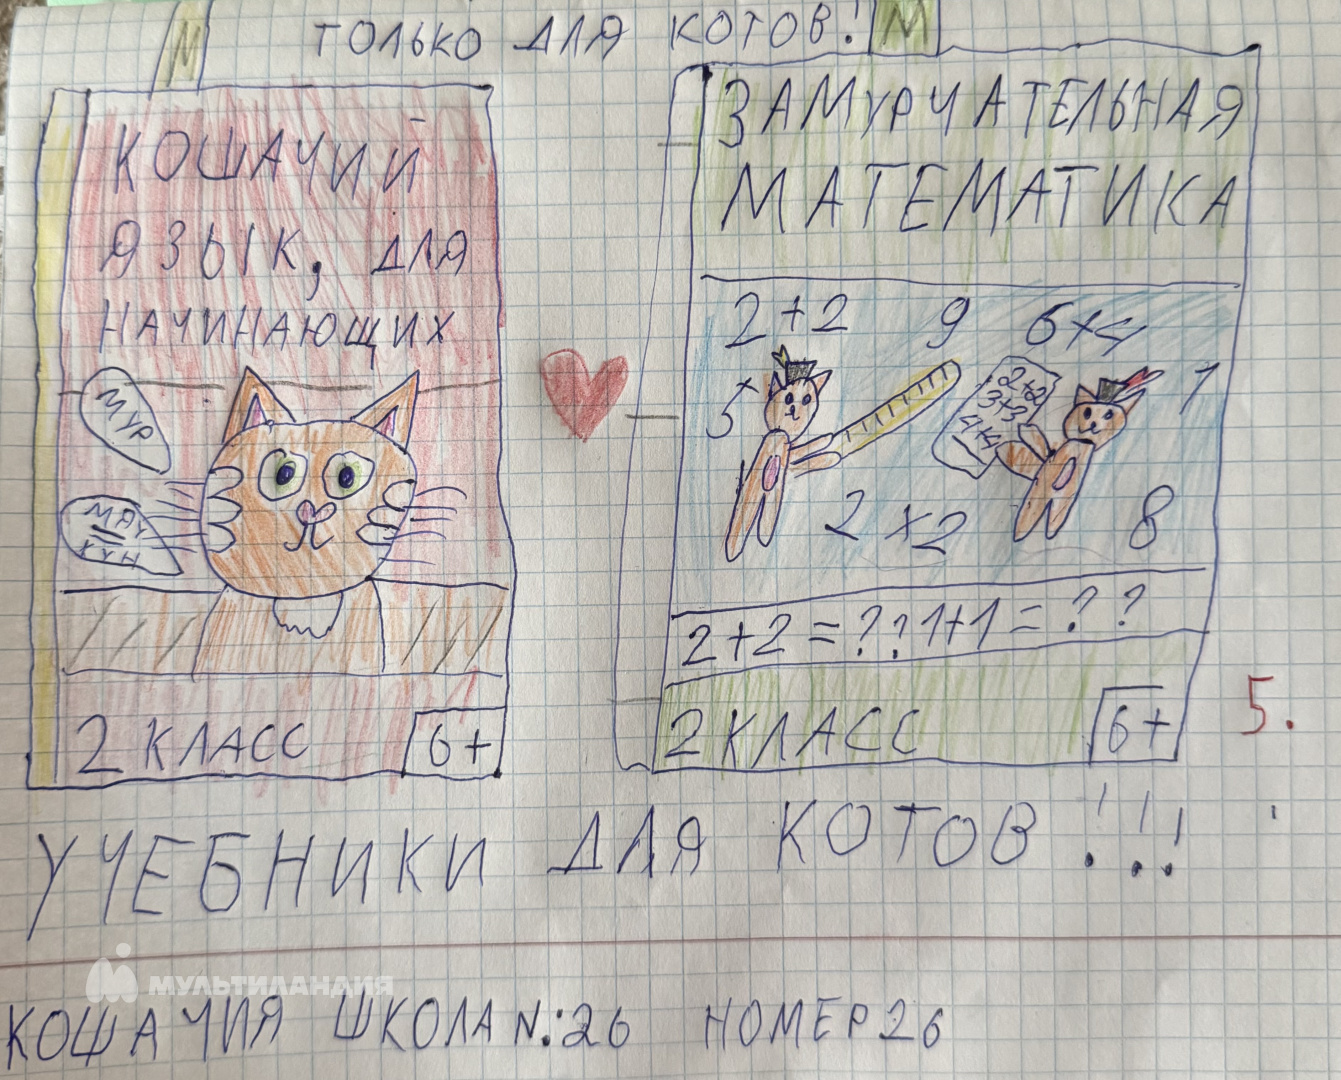 ТОЛЬКО ДЛЯ КОТОВ!
М
М
КОШАЧИЙ
ЯЗЫК, ДЛЯ
НАЧИНАЮЩИХ
МУР
МЯУ
2 КЛАСС
6+
ЗАМУРЧАТЕЛЬНАЯ
МАТЕМАТИКА
2+2 9 6+4
5 1
2+2
3+3
4+4
2×2 8
2+2=?? 1+1=??
2 КЛАСС
6+
5.
УЧЕБНИКИ ДЛЯ КОТОВ!!!
МУЛЬТИЛАНДИЯ
КОШАЧИЯ ШКОЛА N.:26 НОМЕР 26